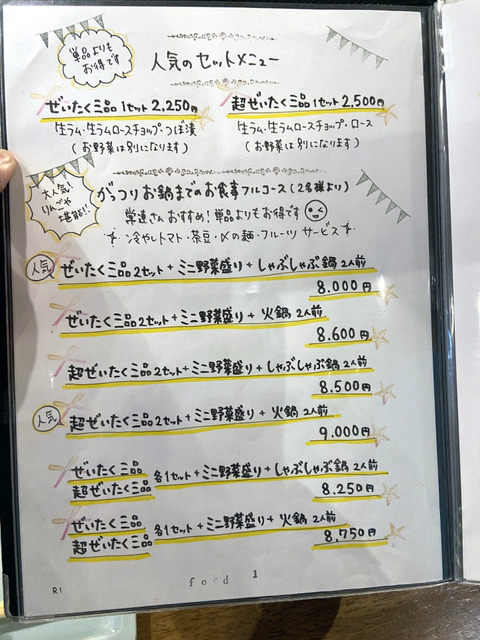 単品よりも
お得です
人気のセットメニュー
ぜいたく三品 1セット 2,250円
生ラム・生ラムロースチョップ・つぼ漬
(お野菜は別になります)
超ぜいたく三品 1セット 2,500円
生ラム・生ラムロースチョップ・ロース
(お野菜は別になります)
大人気!
りんべや
堪能!!
がっつりお鍋までのお食事フルコース(2名様より)
学進さんおすすめ!単品よりもお得です
冷やしトマト・茶豆・〆の麺・フルーツ サービス
人気
ぜいたく三品2セット+ミニ野菜盛り+しゃぶしゃぶ鍋 2人前
8.000円
ぜいたく三品2セット+ミニ野菜盛り+火鍋 2人前
8.600円
超ぜいたく三品2セット+ミニ野菜盛り+しゃぶしゃぶ鍋 2人前
8.500円
人気
超ぜいたく三品2セット+ミニ野菜盛り+火鍋 2人前
9.000円
ぜいたく三品
超ぜいたく三品 各1セット+ミニ野菜盛り+しゃぶしゃぶ鍋 2人前
8.250円
ぜいたく三品
超ぜいたく三品 各1セット+ミニ野菜盛り+火鍋 2人前
8,750円
R1
food 1